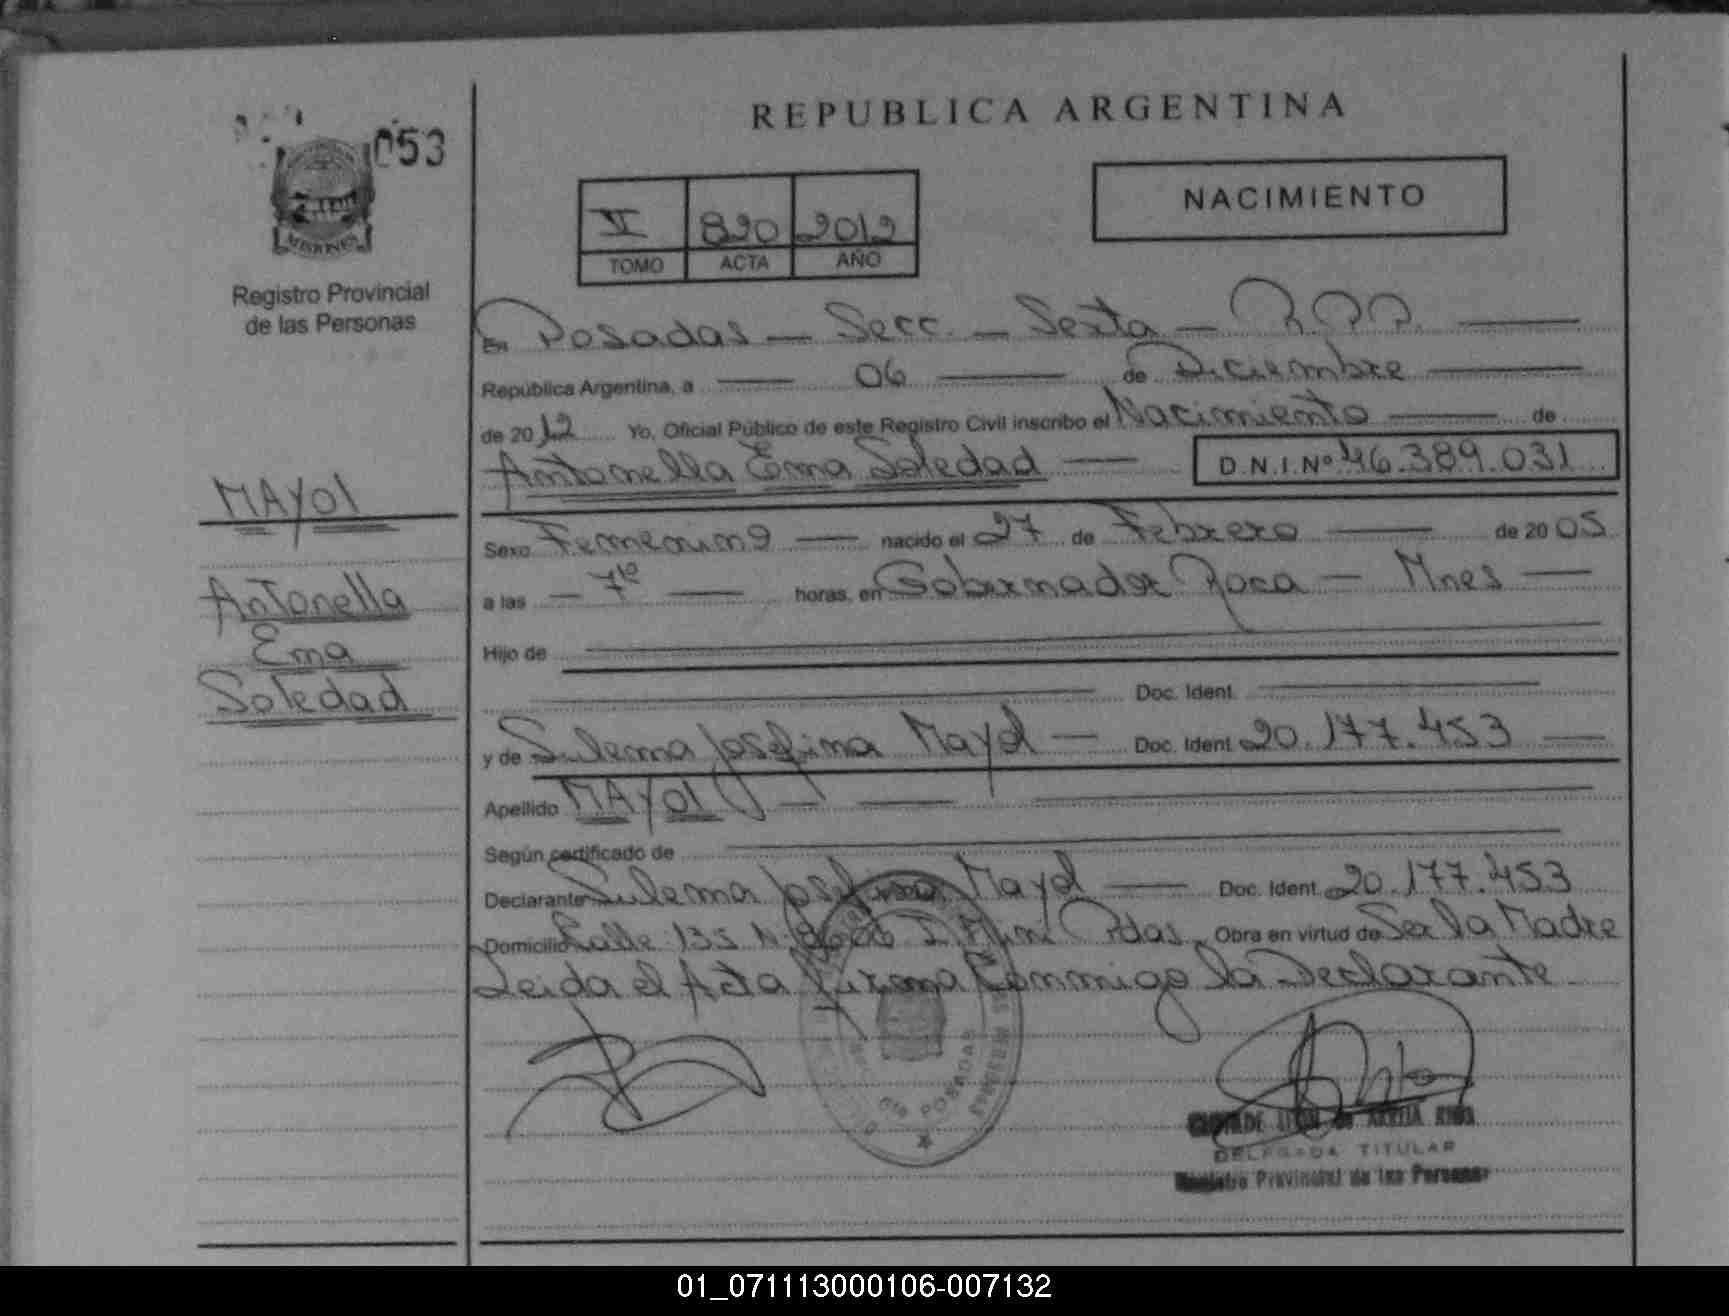 REPUBLICA ARGENTINA
053
MISIONES
Registro Provincial
de las Personas
820 2012
TOMO ACTA AÑO
NACIMIENTO
En Posadas — Secc. — Sexta — R.P.P. —
República Argentina, a — 06 — de Diciembre —
de 2012 Yo, Oficial Público de este Registro Civil inscribo el Nacimiento — de
Antonella Ema Soledad — D.N.I. Nº 46.389.031
MAYOL
Antonella
Ema
Soledad
Sexo Femenino — nacido el 27 de Febrero — de 2005
a las — 7 10 — horas, en Gobernador Roca — Mnes —
Hijo de
Doc. Ident.
y de Sulema Josefina Mayol — Doc. Ident. 20.177.453 —
Apellido MAYOL
Según certificado de
Declarante Sulema Josefina Mayol — Doc. Ident. 20.177.453
Domicilio Calle 135 N Pdas. Obra en virtud de Ser la Madre
Leida el Acta Firma Conmigo la Declarante
6ta POSADAS
DELEGADA TITULAR
Registro Provincial de las Personas
01_071113000106-007132